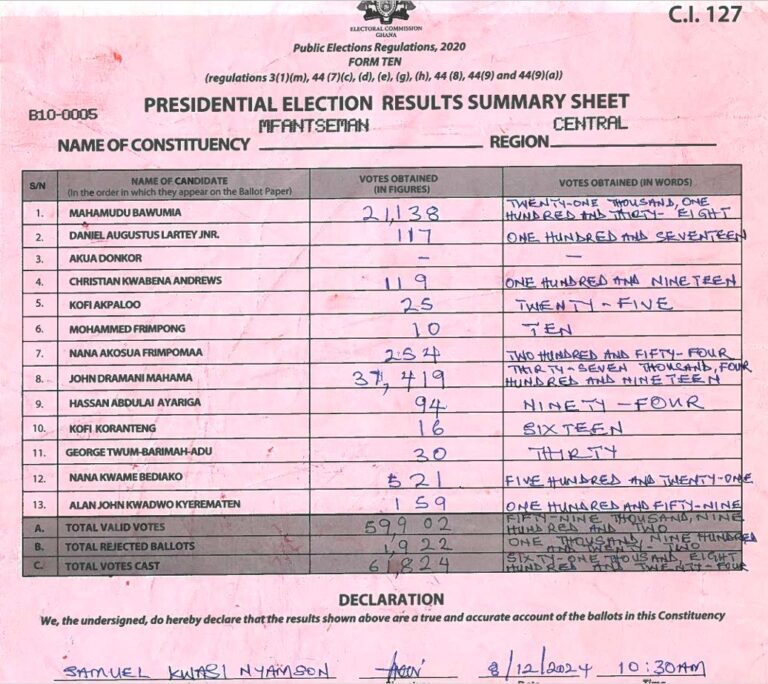 C.I. 127
ELECTORAL COMMISSION
GHANA
Public Elections Regulations, 2020
FORM TEN
(regulations 3(1)(m), 44 (7)(c), (d), (e), (g), (h), 44 (8), 44(9) and 44(9)(a))
B10-0005
PRESIDENTIAL ELECTION RESULTS SUMMARY SHEET
NAME OF CONSTITUENCY MFANTSEMAN REGION CENTRAL
S/N NAME OF CANDIDATE (In the order in which they appear on the Ballot Paper) VOTES OBTAINED (IN FIGURES) VOTES OBTAINED (IN WORDS)
1. MAHAMUDU BAWUMIA 21,138 TWENTY-ONE THOUSAND, ONE HUNDRED AND THIRTY-EIGHT
2. DANIEL AUGUSTUS LARTEY JNR. 117 ONE HUNDRED AND SEVENTEEN
3. AKUA DONKOR - -
4. CHRISTIAN KWABENA ANDREWS 119 ONE HUNDRED AND NINETEEN
5. KOFI AKPALOO 25 TWENTY-FIVE
6. MOHAMMED FRIMPONG 10 TEN
7. NANA AKOSUA FRIMPOMAA 254 TWO HUNDRED AND FIFTY-FOUR
8. JOHN DRAMANI MAHAMA 37,419 THIRTY-SEVEN THOUSAND, FOUR HUNDRED AND NINETEEN
9. HASSAN ABDULAI AYARIGA 94 NINETY-FOUR
10. KOFI KORANTENG 16 SIXTEEN
11. GEORGE TWUM-BARIMAH-ADU 30 THIRTY
12. NANA KWAME BEDIAKO 521 FIVE HUNDRED AND TWENTY-ONE
13. ALAN JOHN KWADWO KYEREMATEN 159 ONE HUNDRED AND FIFTY-NINE
A. TOTAL VALID VOTES 59,902 FIFTY-NINE THOUSAND, NINE HUNDRED AND TWO
B. TOTAL REJECTED BALLOTS 1,922 ONE THOUSAND, NINE HUNDRED AND TWENTY-TWO
C. TOTAL VOTES CAST 61,824 SIXTY-ONE THOUSAND EIGHT HUNDRED AND TWENTY-FOUR
DECLARATION
We, the undersigned, do hereby declare that the results shown above are a true and accurate account of the ballots in this Constituency
SAMUEL KWASI NYAMSON 8/12/2024 10:30AM